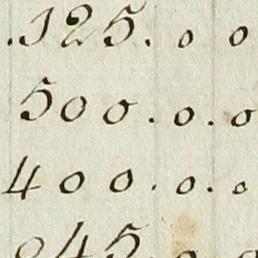 .125. o o
500. o. o
400. o. o
845. o o